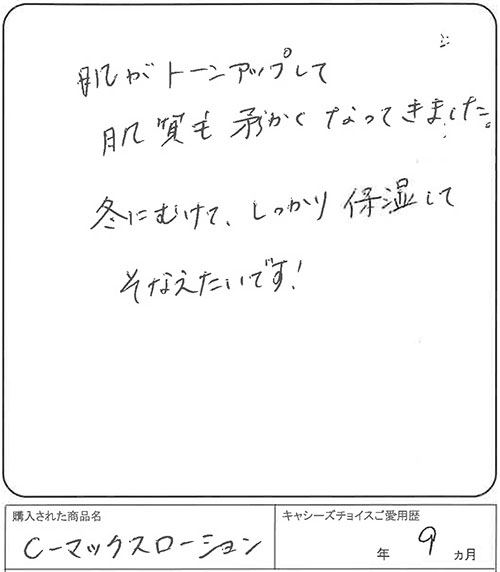 肌がトーンアップして
肌質も柔かくなってきました。
冬にむけて、しっかり保湿して
そなえたいです!
購入された商品名
C-マックスローション
キャシーズチョイスご愛用歴
年 9 ヵ月